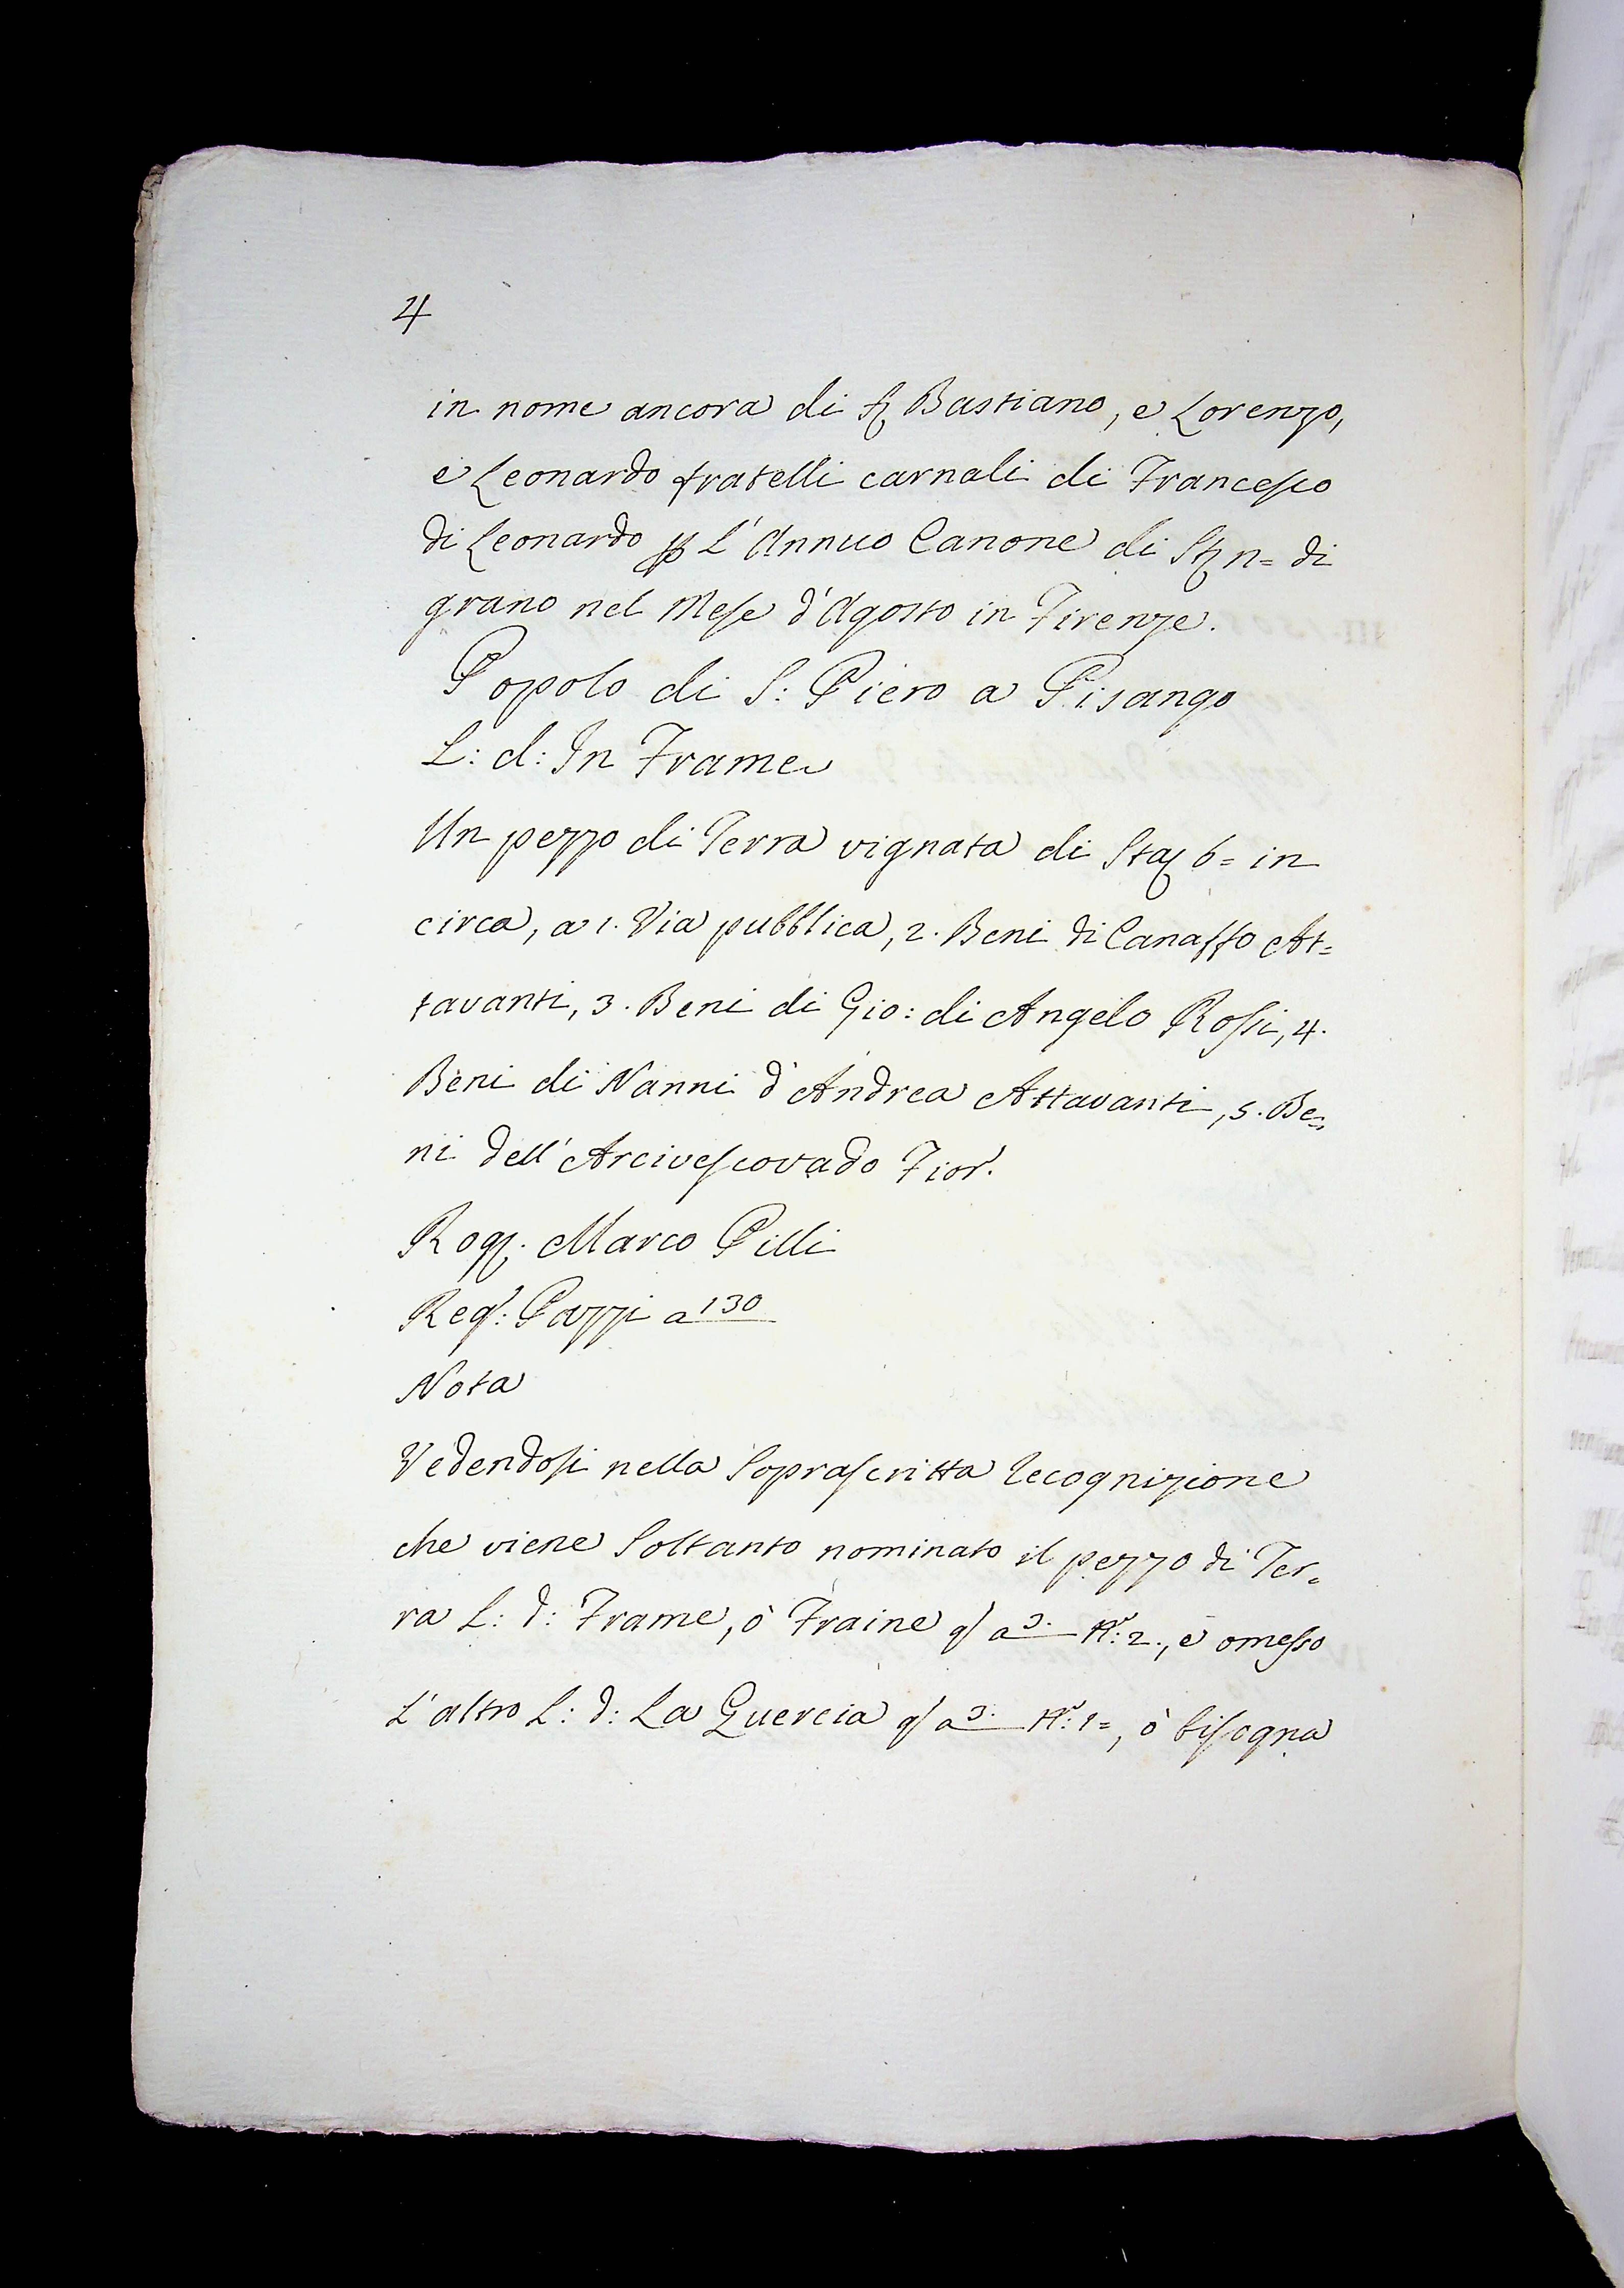 4
in nome ancora di Bastiano, e Lorenzo,
e Leonardo fratelli carnali di Francesco
di Leonardo p L'Annuo Canone di St n= di
grano nel Mese d'Agosto in Firenze.
Popolo di S: Piero a Pisango
L: d: In Frame
Un pezzo di Terra vignata di Sta 6= in
circa, a 1. Via pubblica, 2. Beni di Canasso At=
tavanti, 3. Beni di Gio: di Angelo Rossi, 4.
Beni di Nanni d'Andrea Attavanti, 5. Be=
ni dell'Arcivescovado Fior.
Rog. Marco Pilli
Reg: Pazzi a 130
Nota
Vedendosi nella Soprascritta Recognizione
che viene Soltanto nominato il pezzo di Ter=
ra L: d: Frame, ò Fraine q a 3. N: 2., e omesso
L'altro L: d: La Quercia q a 3. N: 1=, ò bisogna